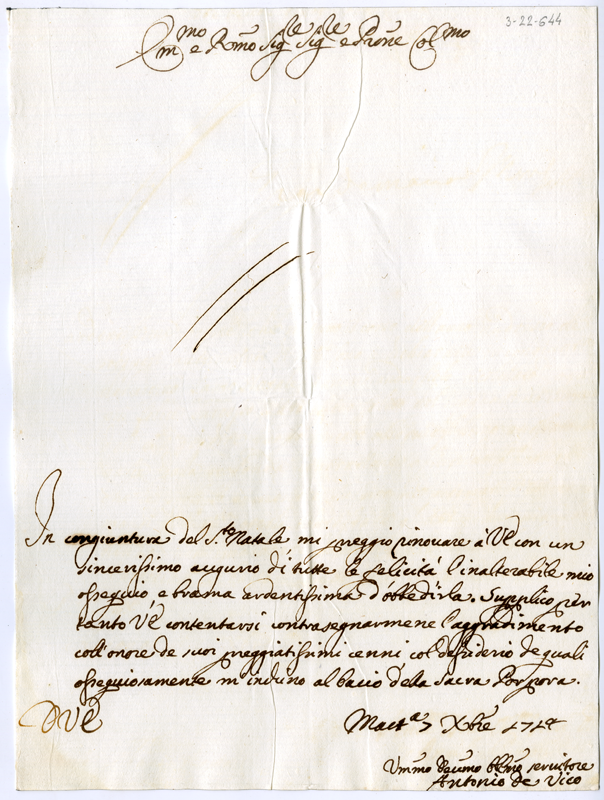 3-22-644
Em.mo e R.mo Sig.re Sig.re e P.rone Col.mo
In congiuntura del S.to Natale mi preggio rinovare à VE con un
sincerissimo augurio di tutte le felicità l'inalterabile mio
ossequio e brama ardentissima d'obbedirla. Supplico per
tanto VE contentarsi contrasegnarmene l'aggradimento
coll'onore de suoi preggiatissimi cenni col desiderio de quali
ossequiosamente m'inchino al bacio della Sacra Porpora.
D VE
Mac.ta 7 Xbre 1714
Um.mo Deu.mo Obl.mo servitore
Antonio de Vico